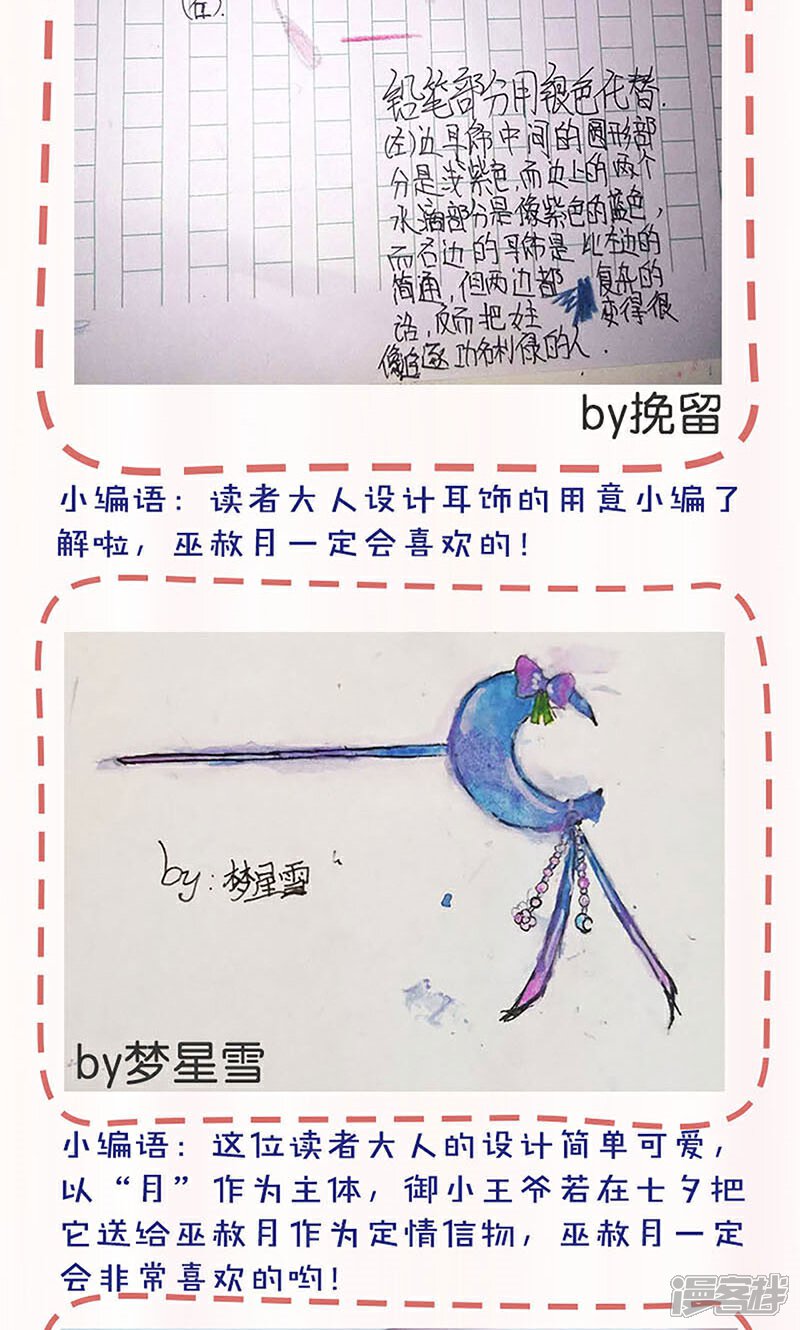 (左).
铅笔部分用银色代替.
(左)边耳饰中间的圆形部
分是浅紫色,而边上的两个
水滴部分是像紫色的蓝色,
而右边的耳饰是比左边的
简通,但两边都 复杂的
话,反而把她 变得很
像追逐功名利禄的人.
by挽留
小编语：读者大人设计耳饰的用意小编了
解啦，巫赦月一定会喜欢的！
by:梦星雪
by梦星雪
小编语：这位读者大人的设计简单可爱，
以“月”作为主体，御小王爷若在七夕把
它送给巫赦月作为定情信物，巫赦月一定
会非常喜欢的哟！
漫客栈